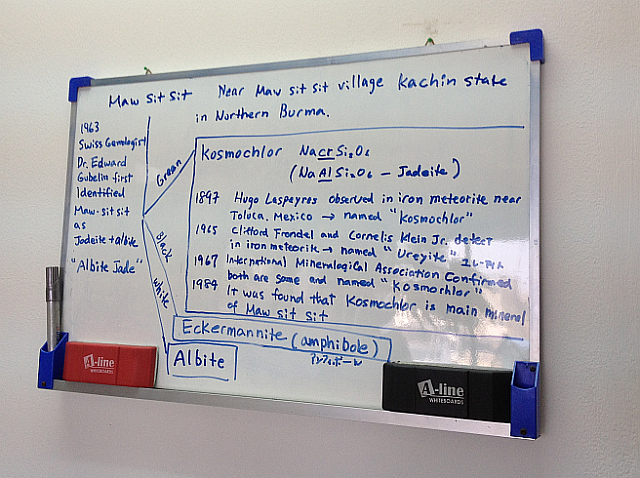 Maw sit sit Near Maw sit sit village Kachin state
in Northern Burma.
1963
Swiss Gemologist
Dr. Edward
Gubelin first
identified
Maw-sit-sit
as
Jadeite + albite
"Albite Jade"
Green
Black
White
Kosmochlor NaCrSi₂O₆
(NaAlSi₂O₆ - Jadeite)
1897 Hugo Laspeyres observed in iron meteorite near
Toluca. Mexico → named "Kosmochlor"
1965 Clifford Frondel and Cornelis Klein Jr. detect
in iron meteorite → named "Ureyite" ユレーアイト
1967 International Mineralogical Association Confirmed
both are same and named "Kosmochlor"
1984 It was found that Kosmochlor is main mineral
of Maw sit sit
Eckermannite (amphibole)
アンフィボール
Albite
A-line
WHITEBOARDS
A-line
WHITEBOARDS